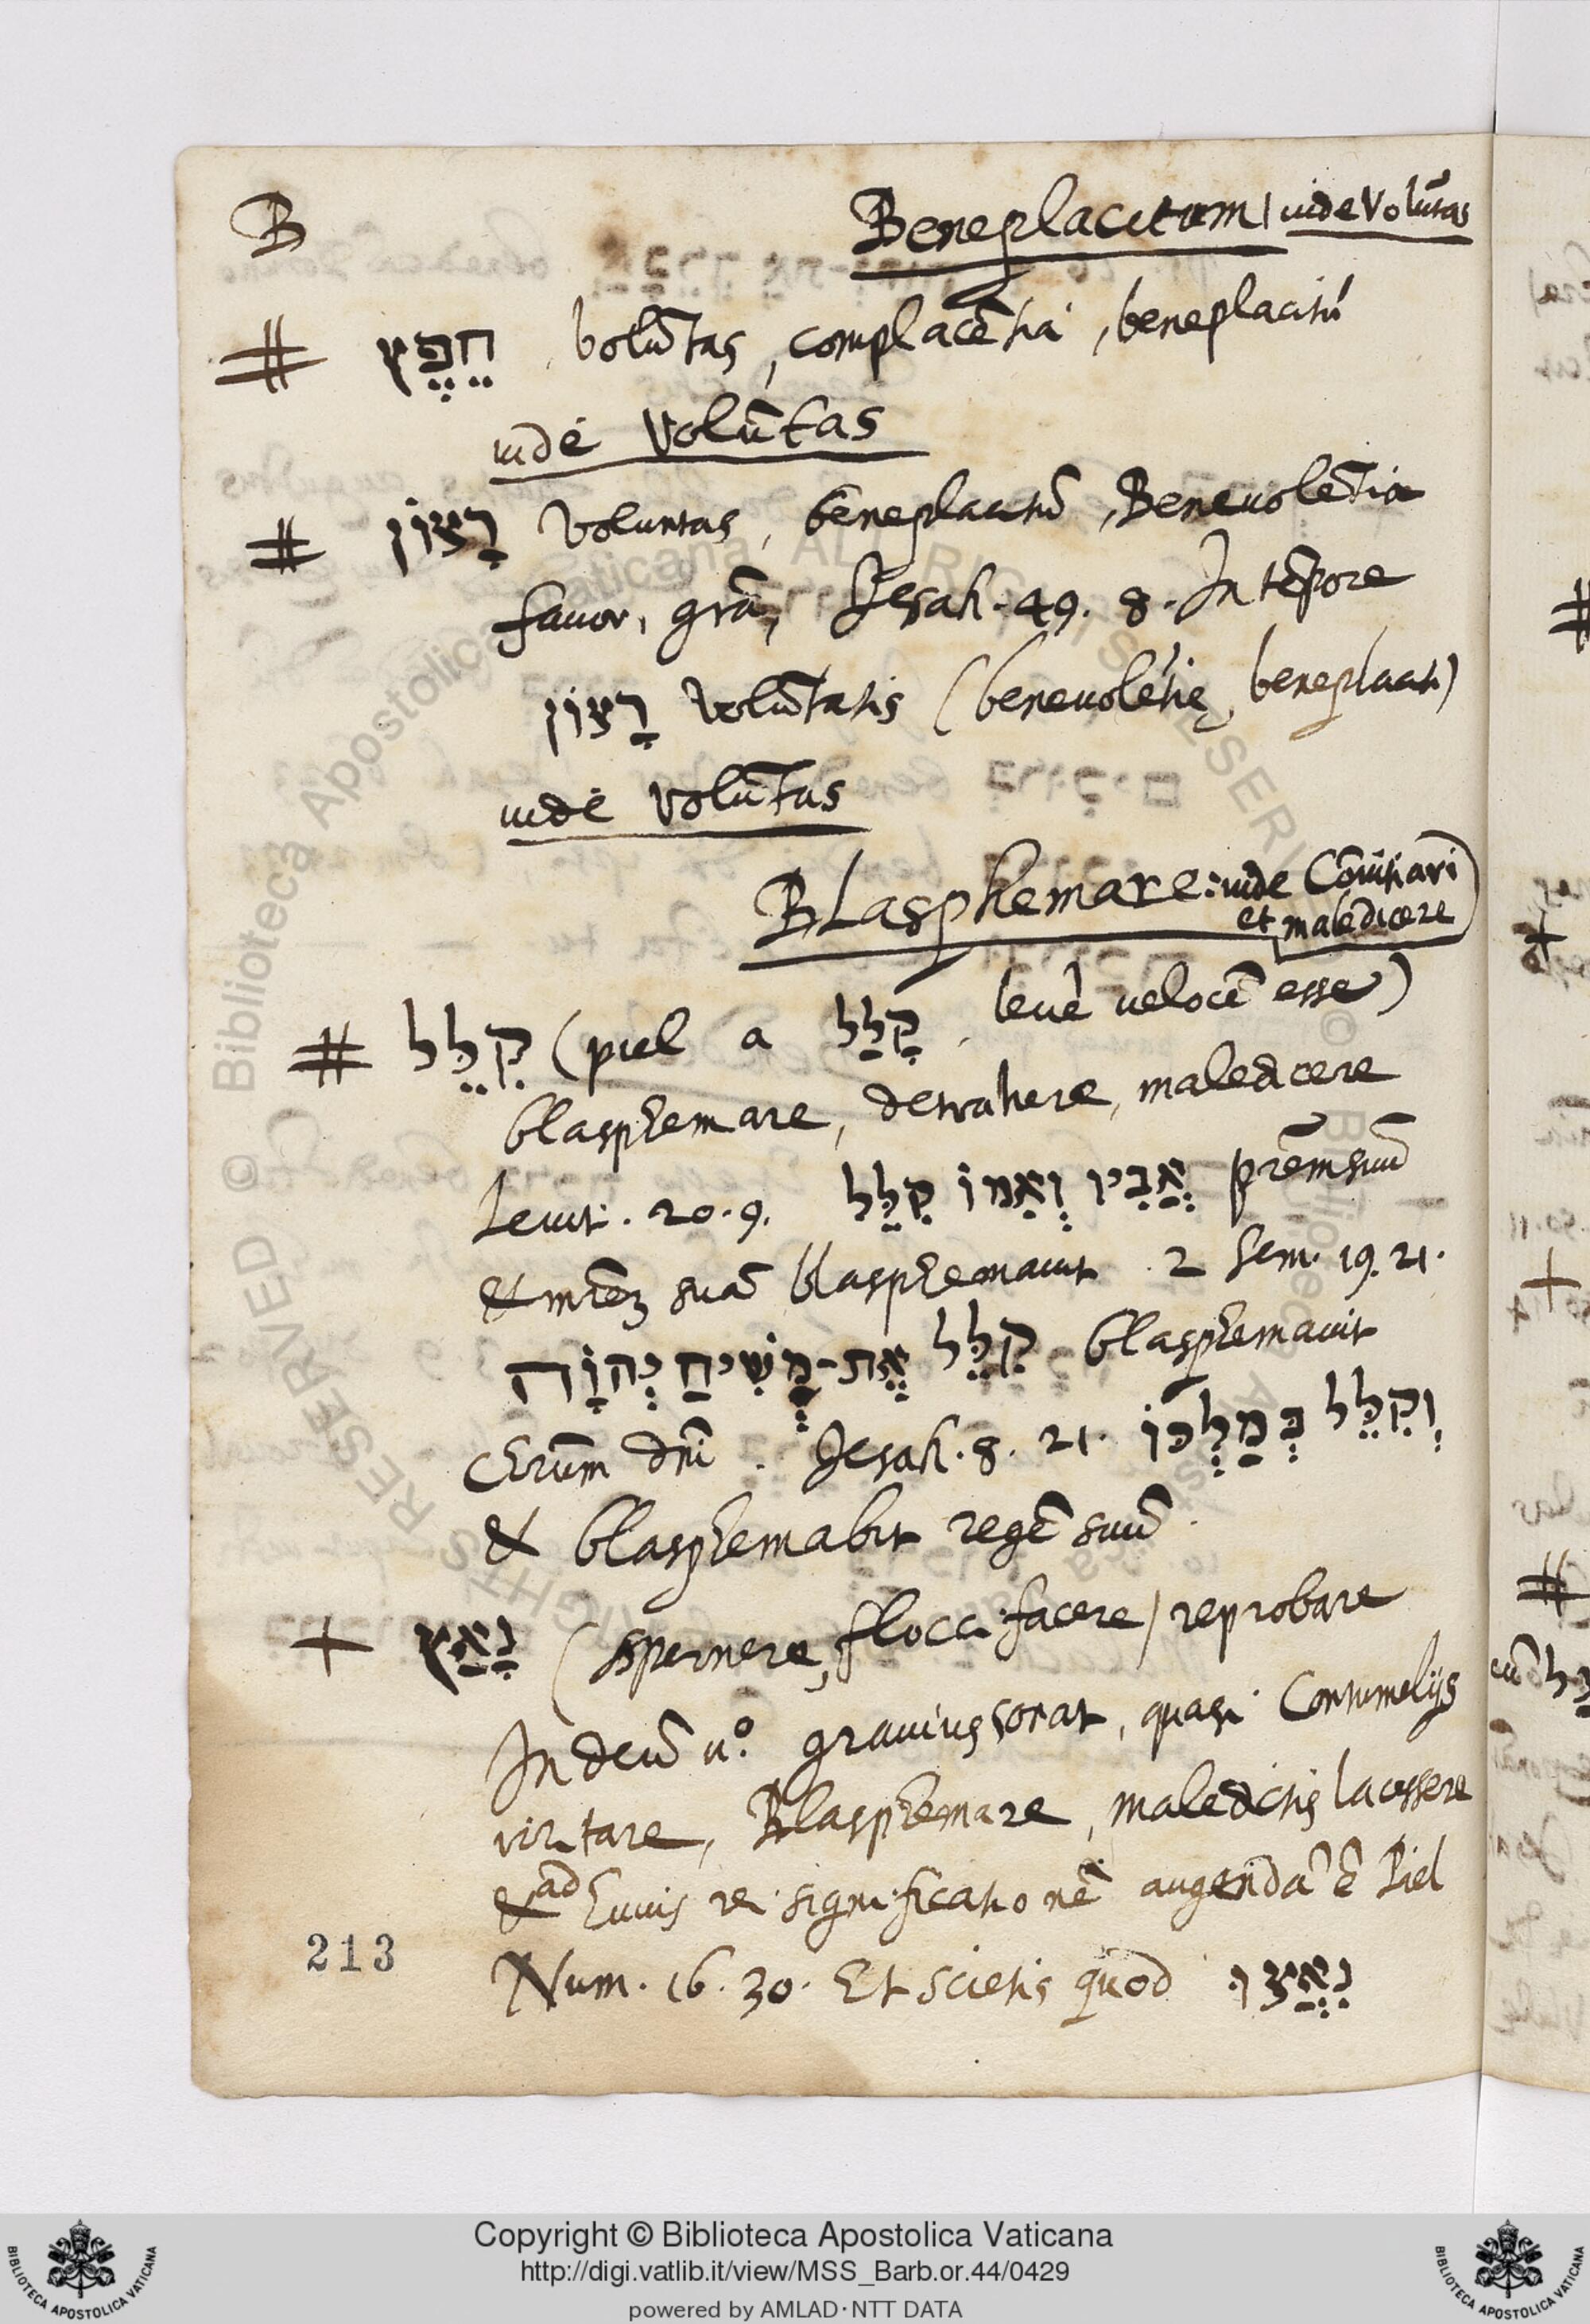 B
Beneplacitum / uide Volũtas
# חֵפֶץ volũtas, complacẽtia, beneplacitũ
uide Volũtas
# רָצוֹן Voluntas, beneplacitũ, Beneuolẽtia
fauor, grã, Jesah. 49. 8. In tẽpore
רָצוֹן Volũtatis (beneuolẽtię, beneplaciti)
uide Volũtas
Blasphemare: uide Cõuitiari
et maledicere
# קִלֵּל (piel a קָלַל leuẽ uelocẽ esse)
blasphemare, detrahere, maledicere
Leuit. 20. 9. אֲבִיו וְאִמוֹ קִלֵּל prẽm suũ
& mrẽm suã blasphemauit. 2 Sem. 19. 21.
קִלֵּל אֶת-מְשִׁיחַ יְהוָֹה blasphemauit
Chrũm dñi. Jesah. 8. 21. וְקִלֵּל בְּמַלְכּוֹ
& blasphemabit regẽ suũ.
+ נָאַץ (spernere, flocci facere / reprobare
In deũ uº. grauius sonat, quasi Contumelijs
Blasphemare, maledictis lacessere
& ad huius rei significationẽ augendã ẽ Piel
Num. 16. 30. Et scietis quod נִאֲצוּ
213
Copyright © Biblioteca Apostolica Vaticana
http://digi.vatlib.it/view/MSS_Barb.or.44/0429
powered by AMLAD·NTT DATA